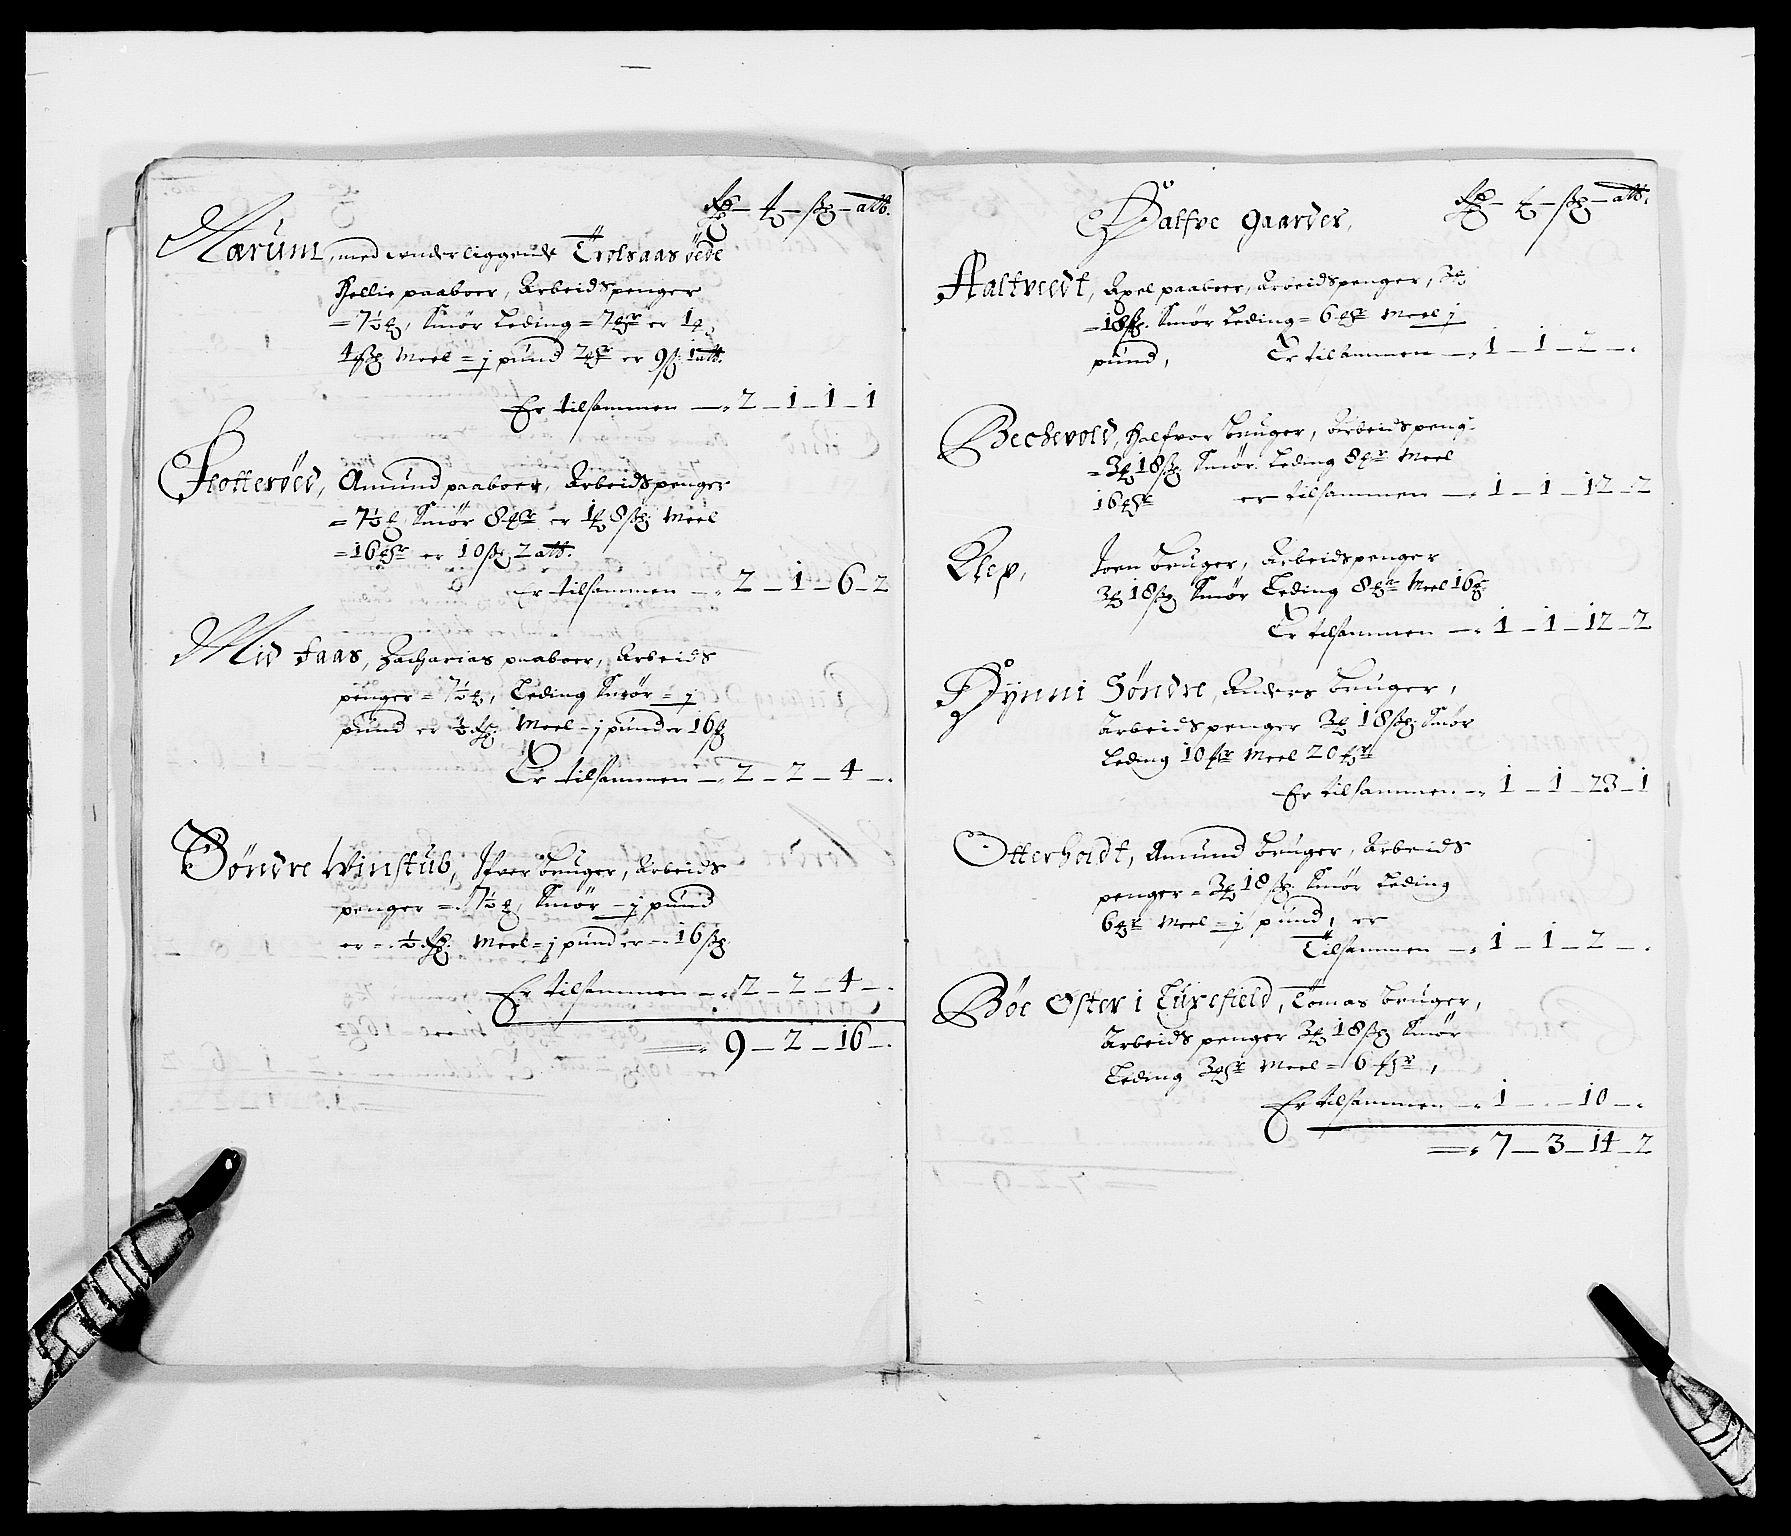 Rd — ₰ — sk — alb.
Narum, med underliggende Trolsaas öede
Hellie paaboer, Arbeids penger
= 7½ ₰, Smör Leding = 7 mrk er 1 ₰
4 sk Meel = j pund 2 mrk er 9 sk 1 alb.
Er tilsammen — 2 — 1 — 1 — 1
Flotteröed, Amund paaboer, Arbeids penger
= 7½ ₰ Smör 8 mrk er 1 ₰ 8 sk Meel
= 16 mrk er 10 sk 2 alb.
er tilsammen — 2 — 1 — 6 — 2
Mid Faas, Zacharias paaboer, Arbeids
penger = 7½ ₰, Leding Smör = j
pund er ½ Rd. Meel = j pund er 16 sk
Er tilsammen — 2 — 2 — 4 — .
Söndre Winstub, Ifver bruger, Arbeids
penger = 7½ ₰, Smör = j pund
er = ½ Rd. Meel = j pund er — 16 sk.
Er tilsammen — 2 — 2 — 4 — .
9 — 2 — 16 — .
Halfve gaarder,
Rd — ₰ — sk — alb.
Haltvedt, Axel paaboer, Arbeids penger, 3 ₰
= 18 sk. Smör Leding = 6 mrk Meel j
pund, Er tilsammen — 1 — 1 — 2 — .
Bechevold, Halfvor bruger, Arbeids peng:
= 3 ₰ 18 sk Smör Leding 8 mrk Meel
16 mrk er tilsammen — 1 — 1 — 12 — 2
Klep, Joen bruger, Arbeids penger
3 ₰ 18 sk Smör Leding 8 mrk Meel 16 mrk
Er tilsammen — 1 — 1 — 12 — 2
Hynni Söndre, Anders bruger,
Arbeids penger 3 ₰ 18 sk Smör
Leding 10 mrk Meel 20 mrk
Er tilsammen — 1 — 1 — 23 — 1
Otterholdt, Amund bruger, Arbeids
penger = 3 ₰ 18 sk Smör Leding
6 mrk Meel = j pund, er
Tilsammen — 1 — 1 — 2 — .
Böe Öster i Luxefield, Tomas bruger,
Arbeids penger 3 ₰ 18 sk Smör
Leding 3 mrk Meel = 6 mrk,
Er tilsammen — 1 — . — 10 — .
7 — 3 — 14 — 2